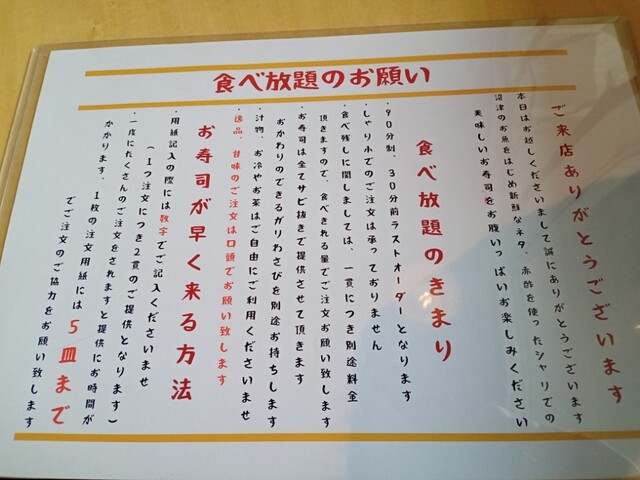 食べ放題のお願い
ご来店ありがとうございます
本日はお越しくださいまして誠にありがとうございます
沼津のお魚をはじめ新鮮なネタ、赤酢を使ったシャリでの
美味しいお寿司をお腹いっぱいお楽しみください
食べ放題のきまり
・90分制、30分前ラストオーダーとなります
・しゃり小でのご注文は承っておりません
・食べ残しに関しましては、一貫につき別途料金
頂きますので、食べきれる量でご注文お願い致します
・お寿司は全てサビ抜きで提供させて頂きます
おかわりのできるがりわさびを別途お持ちします
・汁物、お冷やお茶はご自由にご利用くださいませ
・逸品、甘味のご注文は口頭でお願い致します
お寿司が早く来る方法
・用紙記入の際には数字でご記入くださいませ
(1つ注文につき2貫のご提供となります)
・一度にたくさんのご注文をされますと提供にお時間が
かかります、1枚の注文用紙には5皿まで
でご注文のご協力をお願い致します